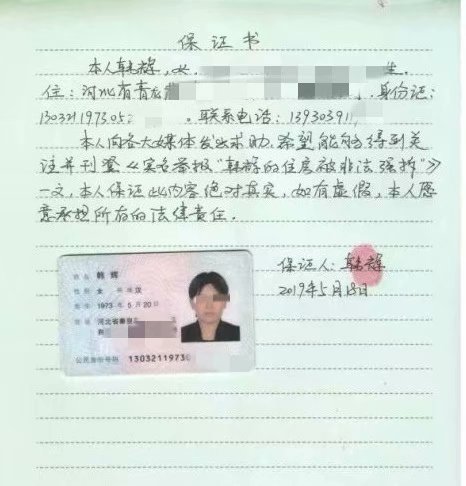 保证书
本人韩辉,女, 生.
住:河北省青龙 身份证:
130321197305 . 联系电话:139303911
本人向各大媒体发出求助,希望能够得到关
注并刊登《实名举报"韩辉的住房被非法强拆"》
一文,本人保证此内容绝对真实,如有虚假,本人愿
意承担所有的法律责任.
保证人:韩辉
2019年5月18日
姓名 韩辉
性别 女 民族 汉
出生 1973年5月20日
住址 河北省秦皇
公民身份号码 13032119730